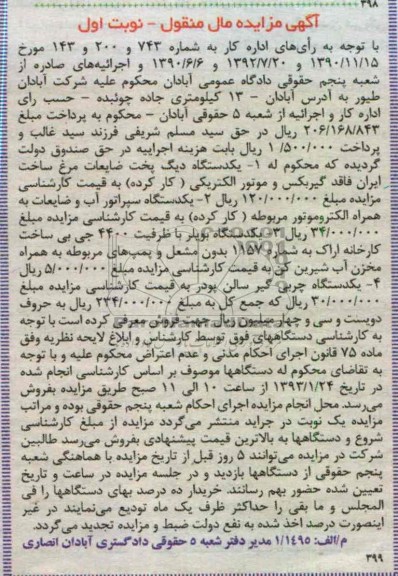 ۳۹۸
آگهی مزایده مال منقول - نوبت اول
با توجه به رأی‌های اداره کار به شماره ۷۴۳ و ۲۰۰ و ۱۴۳ مورخ
۱۳۹۰/۱۱/۱۵ و ۱۳۹۲/۷/۲۰ و ۱۳۹۰/۶/۶ و اجرائیه‌های صادره از
شعبه پنجم حقوقی دادگاه عمومی آبادان محکوم علیه شرکت آبادان
طیور به آدرس آبادان - ۱۳ کیلومتری جاده چوئبده - حسب رأی
اداره کار و اجرائیه از شعبه ۵ حقوقی آبادان - محکوم به پرداخت مبلغ
۲۰۶/۱۶۸/۸۴۳ ریال در حق سید مسلم شریفی فرزند سید غالب و
پرداخت ۱/۵۰۰/۰۰۰ ریال بابت هزینه اجراییه در حق صندوق دولت
گردیده که محکوم له ۱- یکدستگاه دیگ پخت ضایعات مرغ ساخت
ایران فاقد گیربکس و موتور الکتریکی ( کار کرده) به قیمت کارشناسی
مزایده مبلغ ۱۲۰/۰۰۰/۰۰۰ ریال ۲- یکدستگاه سپراتور آب و ضایعات به
همراه الکتروموتور مربوطه ( کار کرده) به قیمت کارشناسی مزایده مبلغ
۳۴/۰۰۰/۰۰۰ ریال ۳- یکدستگاه بویلر با ظرفیت ۴۴۰۰ جی بی ساخت
کارخانه اراک به شماره ۱۱۵۷ بدون مشعل و پمپ‌های مربوطه به همراه
مخزن آب شیرین کن به قیمت کارشناسی مزایده مبلغ ۵۰/۰۰۰/۰۰۰ ریال
۴- یکدستگاه چربی گیر سالن پودر به قیمت کارشناسی مزایده مبلغ
۳۰/۰۰۰/۰۰۰ ریال که جمع کل به مبلغ ۲۳۴/۰۰۰/۰۰۰ ریال به حروف
دویست و سی و چهار میلیون ریال جهت فروش معرفی کرده است با توجه
به کارشناسی دستگاههای فوق توسط کارشناس و ابلاغ لایحه نظریه وفق
ماده ۷۵ قانون اجرای احکام مدنی و عدم اعتراض محکوم علیه و با توجه
به تقاضای محکوم له دستگاهها موصوف بر اساس کارشناسی انجام شده
در تاریخ ۱۳۹۳/۱/۲۴ از ساعت ۱۰ الی ۱۱ صبح طریق مزایده بفروش
می‌رسد. محل انجام مزایده اجرای احکام شعبه پنجم حقوقی بوده و مراتب
مزایده یک نوبت در جراید منتشر می‌گردد مزایده از مبلغ کارشناسی
شروع و دستگاهها به بالاترین قیمت پیشنهادی بفروش می‌رسد طالبین
شرکت در مزایده می‌توانند ۵ روز قبل از تاریخ مزایده با هماهنگی شعبه
پنجم حقوقی از دستگاهها بازدید و در جلسه مزایده در ساعت و تاریخ
تعیین شده حضور بهم رسانند. خریدار ده درصد بهای دستگاهها را فی
المجلس و ما بقی را حداکثر ظرف یک ماه تودیع می‌نمایند در غیر
اینصورت درصد اخذ شده به نفع دولت ضبط و مزایده تجدید می‌گردد.
م/الف: ۱/۱۴۹۵ مدیر دفتر شعبه ۵ حقوقی دادگستری آبادان انصاری
۳۹۹